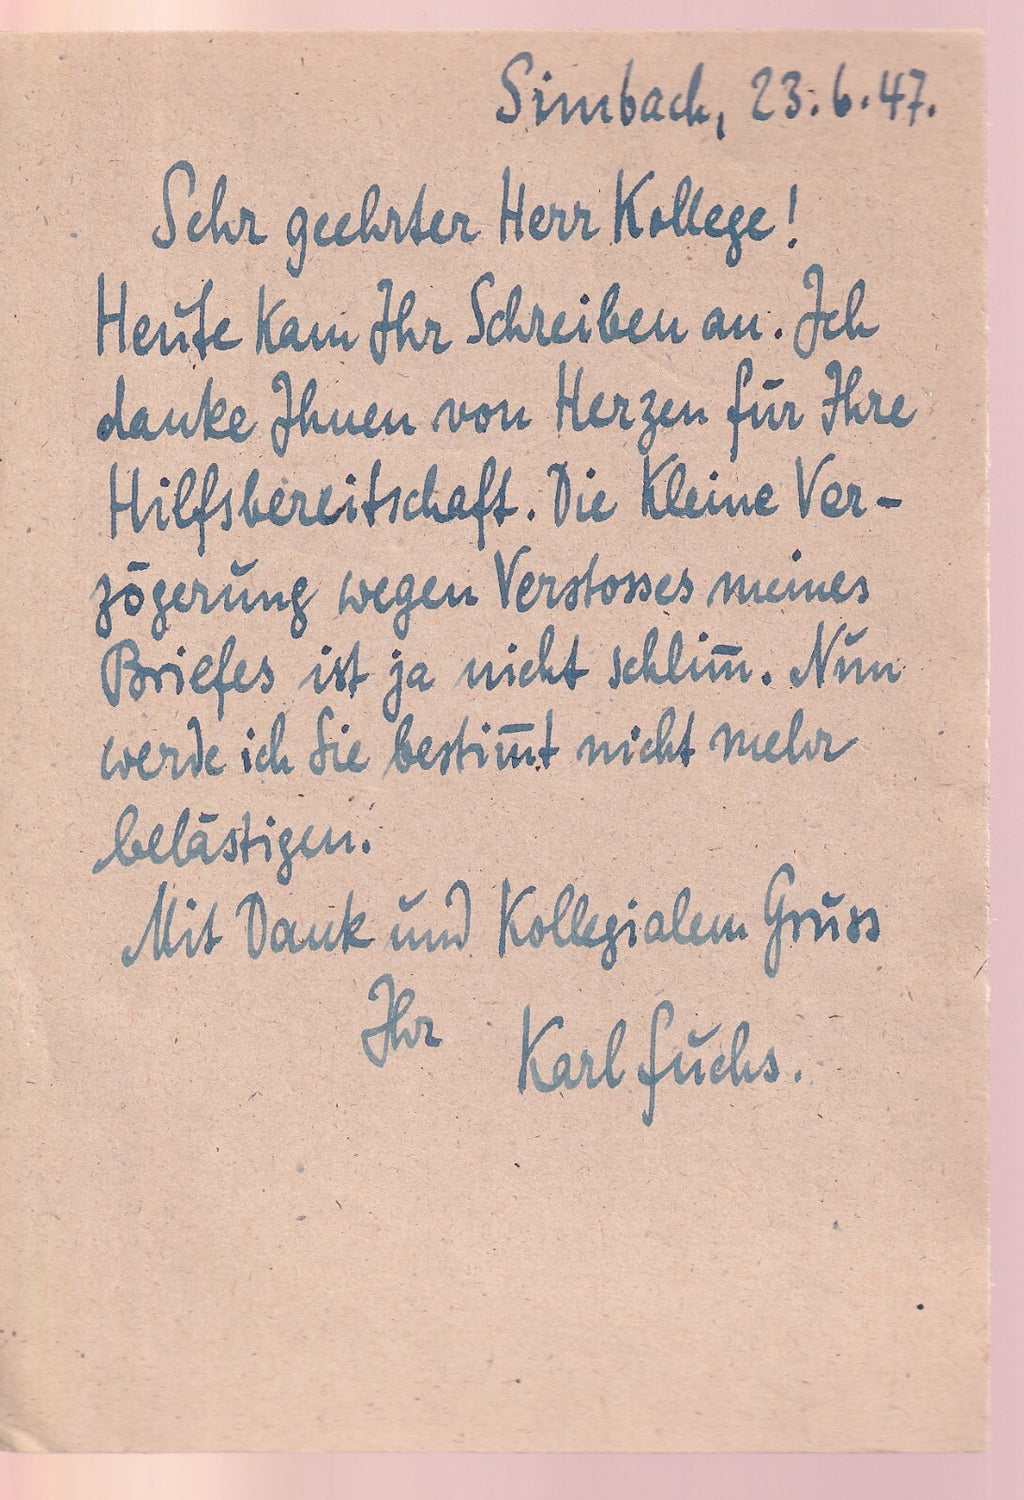 Simbach, 23.6.47.
Sehr geehrter Herr Kollege!
Heute kam Ihr Schreiben an. Ich
danke Ihnen von Herzen für Ihre
Hilfsbereitschaft. Die kleine Ver-
zögerung wegen Verstosses meines
Briefes ist ja nicht schlim̅. Nun
werde ich Sie bestim̅t nicht mehr
belästigen.
Mit Dank und kollegialem Gruss
Ihr Karl Fuchs.